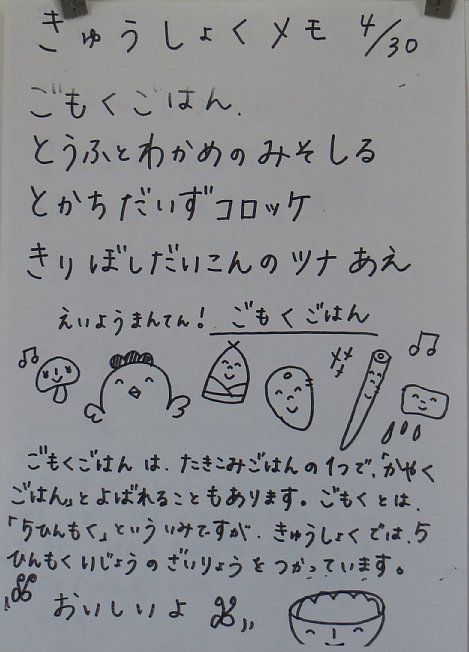 きゅうしょくメモ 4/30
ごもくごはん.
とうふとわかめのみそしる
とかちだいずコロッケ
きりぼしだいこんのツナあえ
えいようまんてん! ごもくごはん
ごもくごはんは、たきこみごはんの1つで、「かやく
ごはん」とよばれることもあります。ごもくとは、
「5ひんもく」といういみですが、きゅうしょくでは、5
ひんもくいじょうのざいりょうをつかっています。
おいしいよ